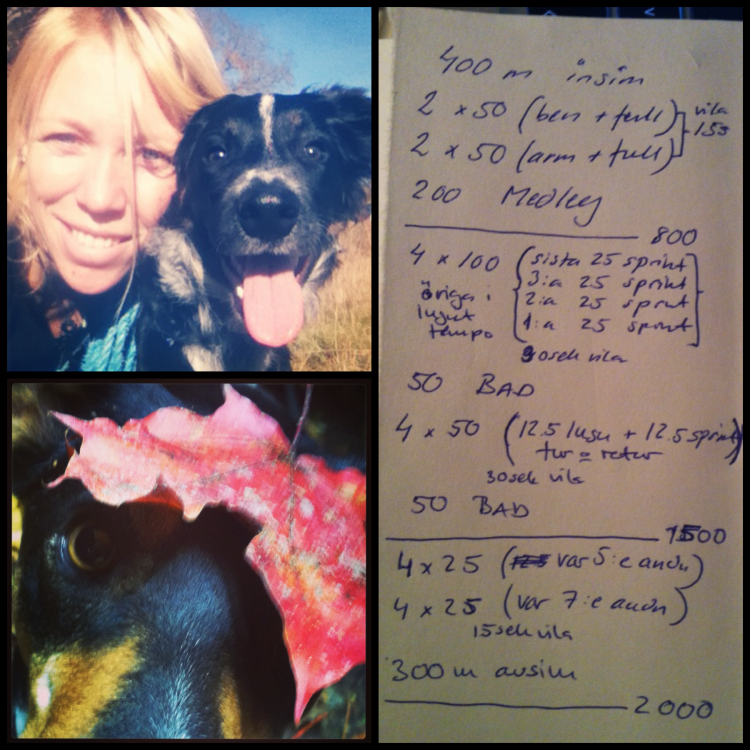 400 m insim
2 x 50 (ben + full)
2 x 50 (arm + full)
vila
15s
200 Medley
800
4 x 100
(sista 25 sprint
3:a 25 sprint
2:a 25 sprint
1:a 25 sprint)
övriga i
lugnt
tempo
90sek vila
50 BAD
4 x 50 (12.5 lugn + 12.5 sprint)
tur o retur
30sek vila
50 BAD
1500
4 x 25 (var 5:e andn)
4 x 25 (var 7:e andn)
15sek vila
300 m avsim
2000